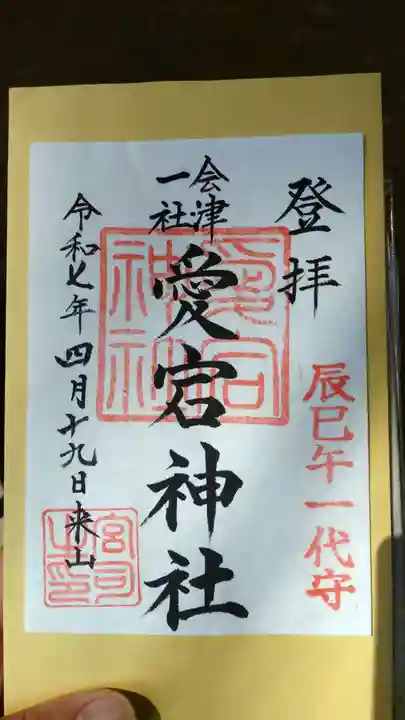 登拝
辰巳午一代守
会津
一社
愛宕神社
愛宕
神社
令和七年四月十九日来山
宮司
之印